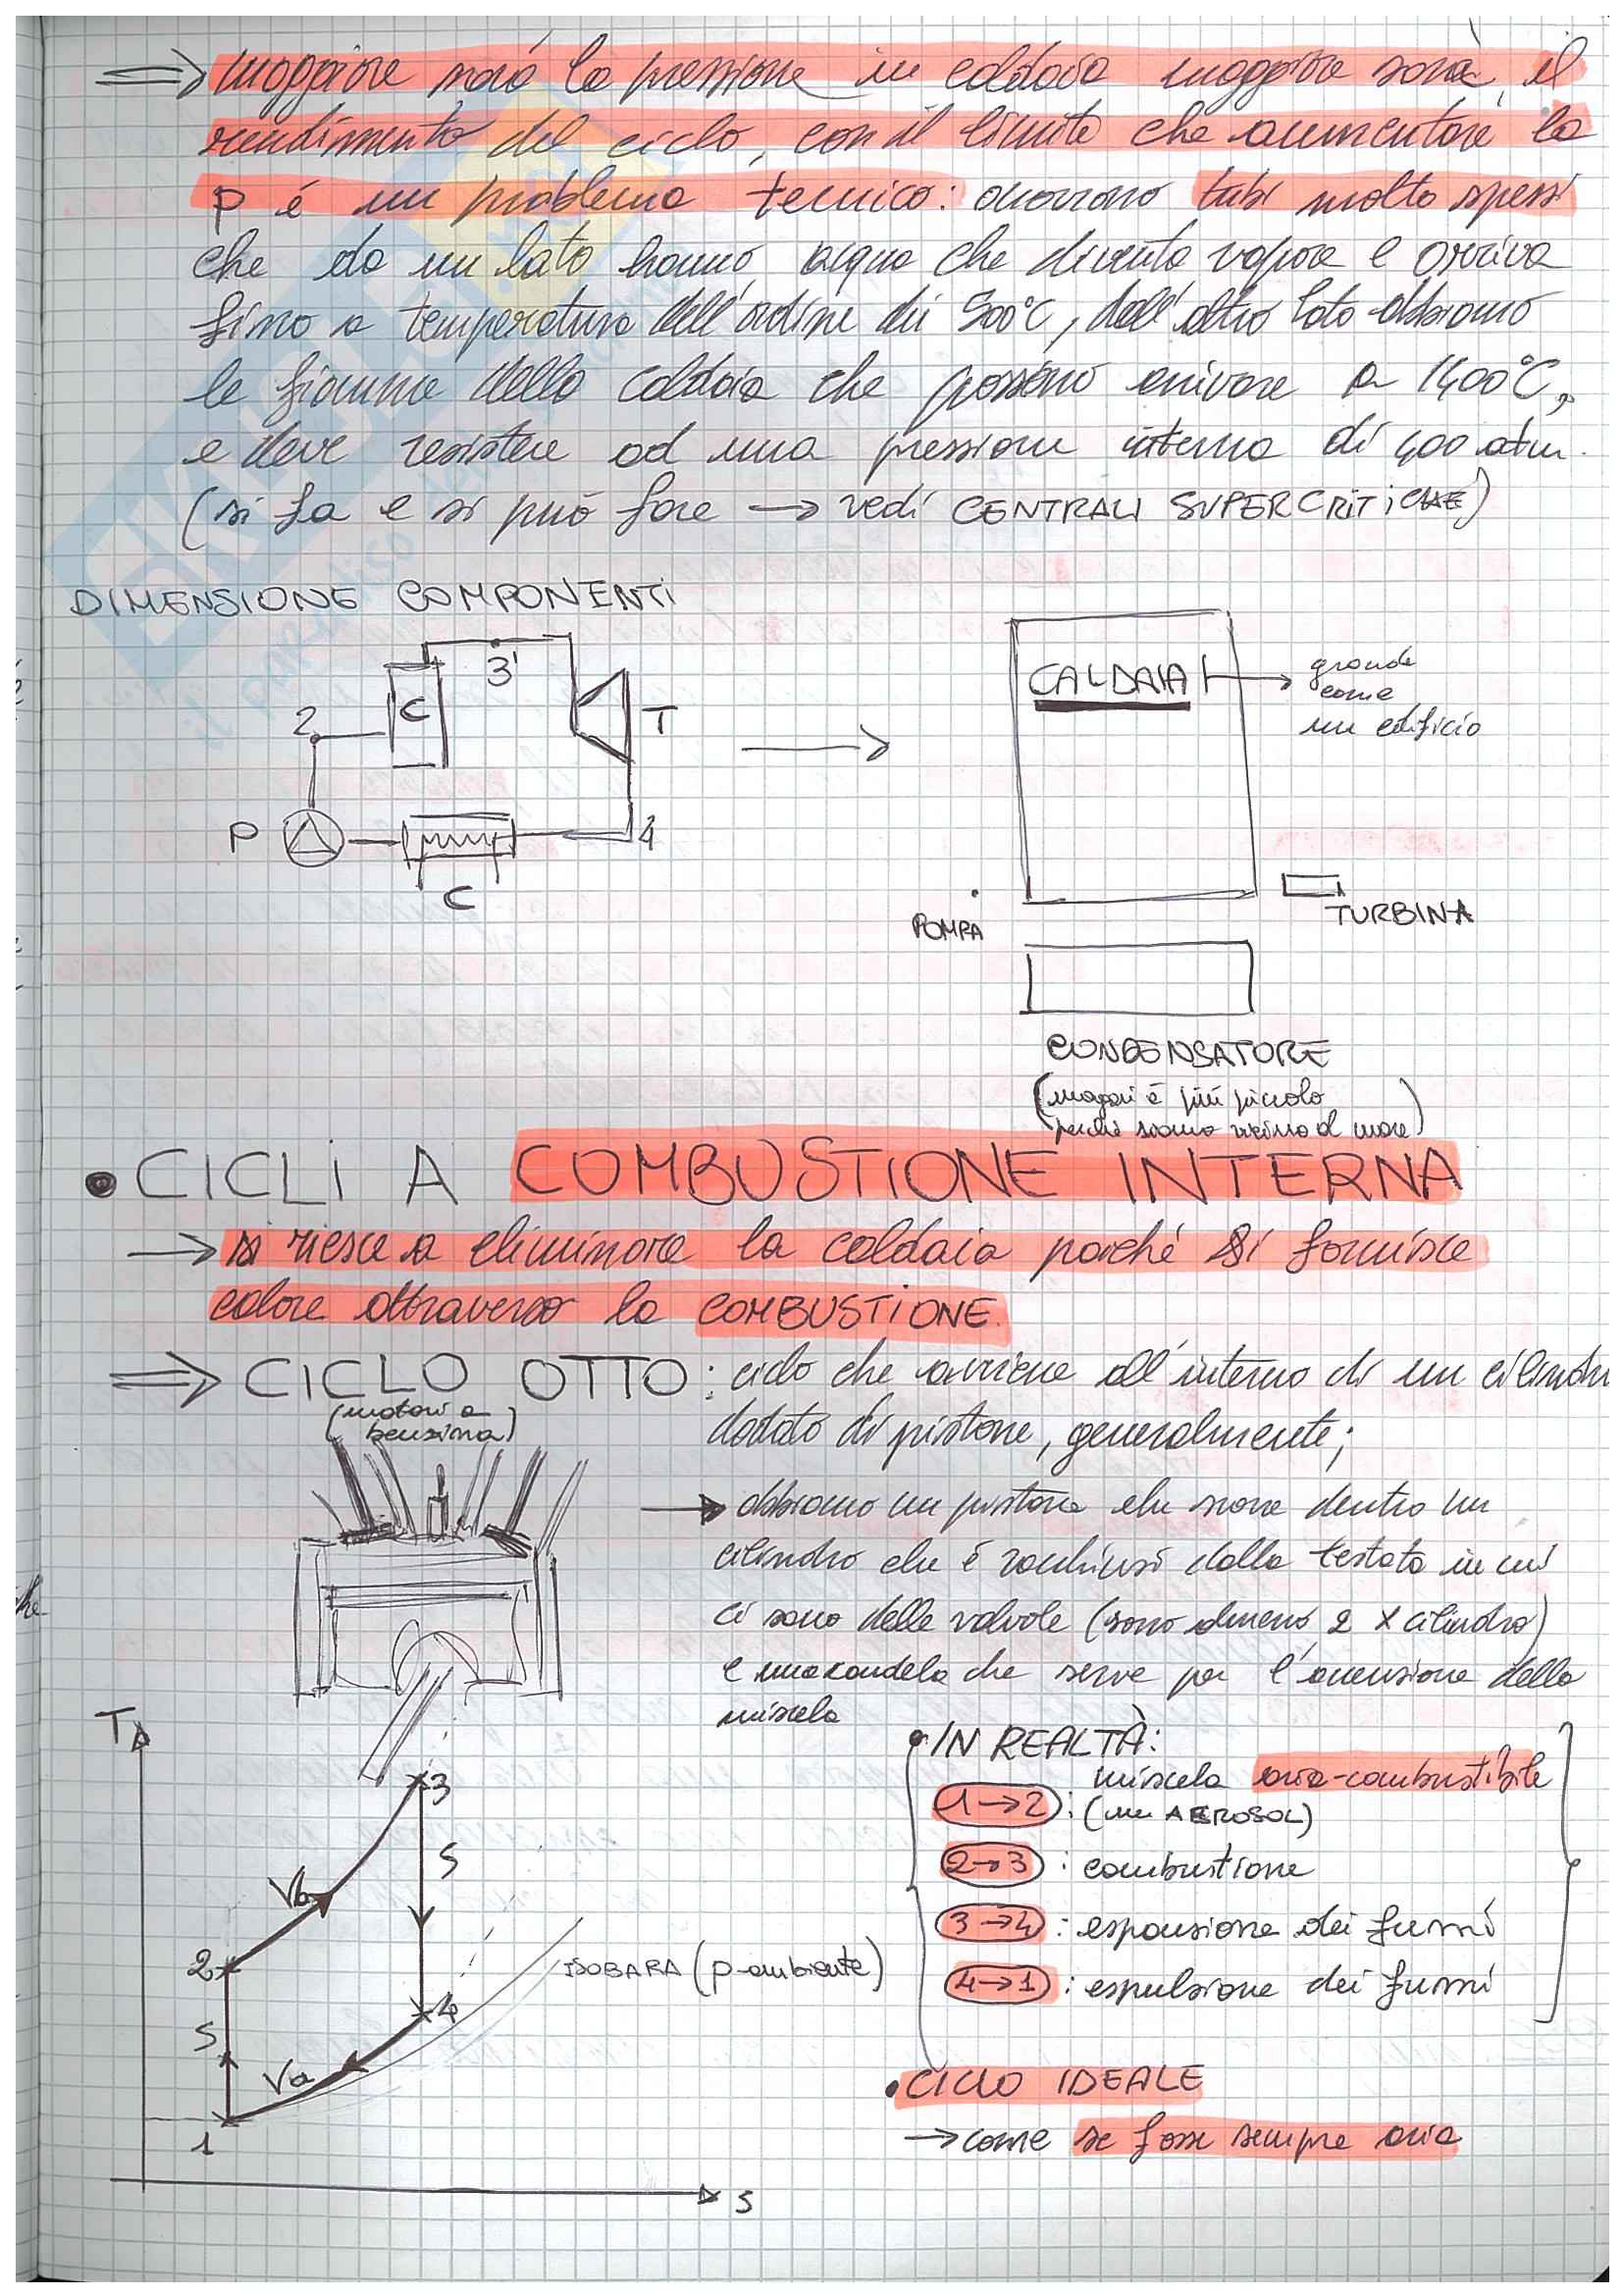 ⇒ maggiore sarà la pressione in caldaia maggiore sarà il
rendimento del ciclo, con il limite che aumentare la
P é un problema tecnico: occorrono tubi molto spessi
che da un lato hanno acqua che diventa vapore e arriva
fino a temperatura dell'ordine di 500°C, dall'altro lato abbiamo
le fiamme della caldaia che possono arrivare a 1400°C,
e deve resistere ad una pressione interna di 400 atm.
(si fa e si può fare → vedi CENTRALI SUPERCRITICHE)
DIMENSIONE COMPONENTI
3'
C
2
T
P
4
C
CALDAIA → grande
come
un edificio
POMPA
TURBINA
CONDENSATORE
(magari é più piccolo
perché siamo vicino al mare)
• CICLI A COMBUSTIONE INTERNA
→ si riesce a eliminare la caldaia perché si fornisce
calore attraverso la COMBUSTIONE.
⇒ CICLO OTTO: ciclo che avviene all'interno di un cilindro
(motori a
benzina)
dodato di pistone, generalmente;
→ abbiamo un pistone che move dentro un
cilindro che é racchiusi dalla testata in cui
ci sono delle valvole (sono almeno 2 x cilindro)
e una candela che serve per l'accensione della
miscela
T
3
S
Vb
2
ISOBARA (p ambiente)
4
S
Va
1
S
• IN REALTÀ:
1→2: miscela aria-combustibile
(un AEROSOL)
2→3: combustione
3→4: espansione dei fumi
4→1: espulsione dei fumi
• CICLO IDEALE
→ come se fosse sempre aria